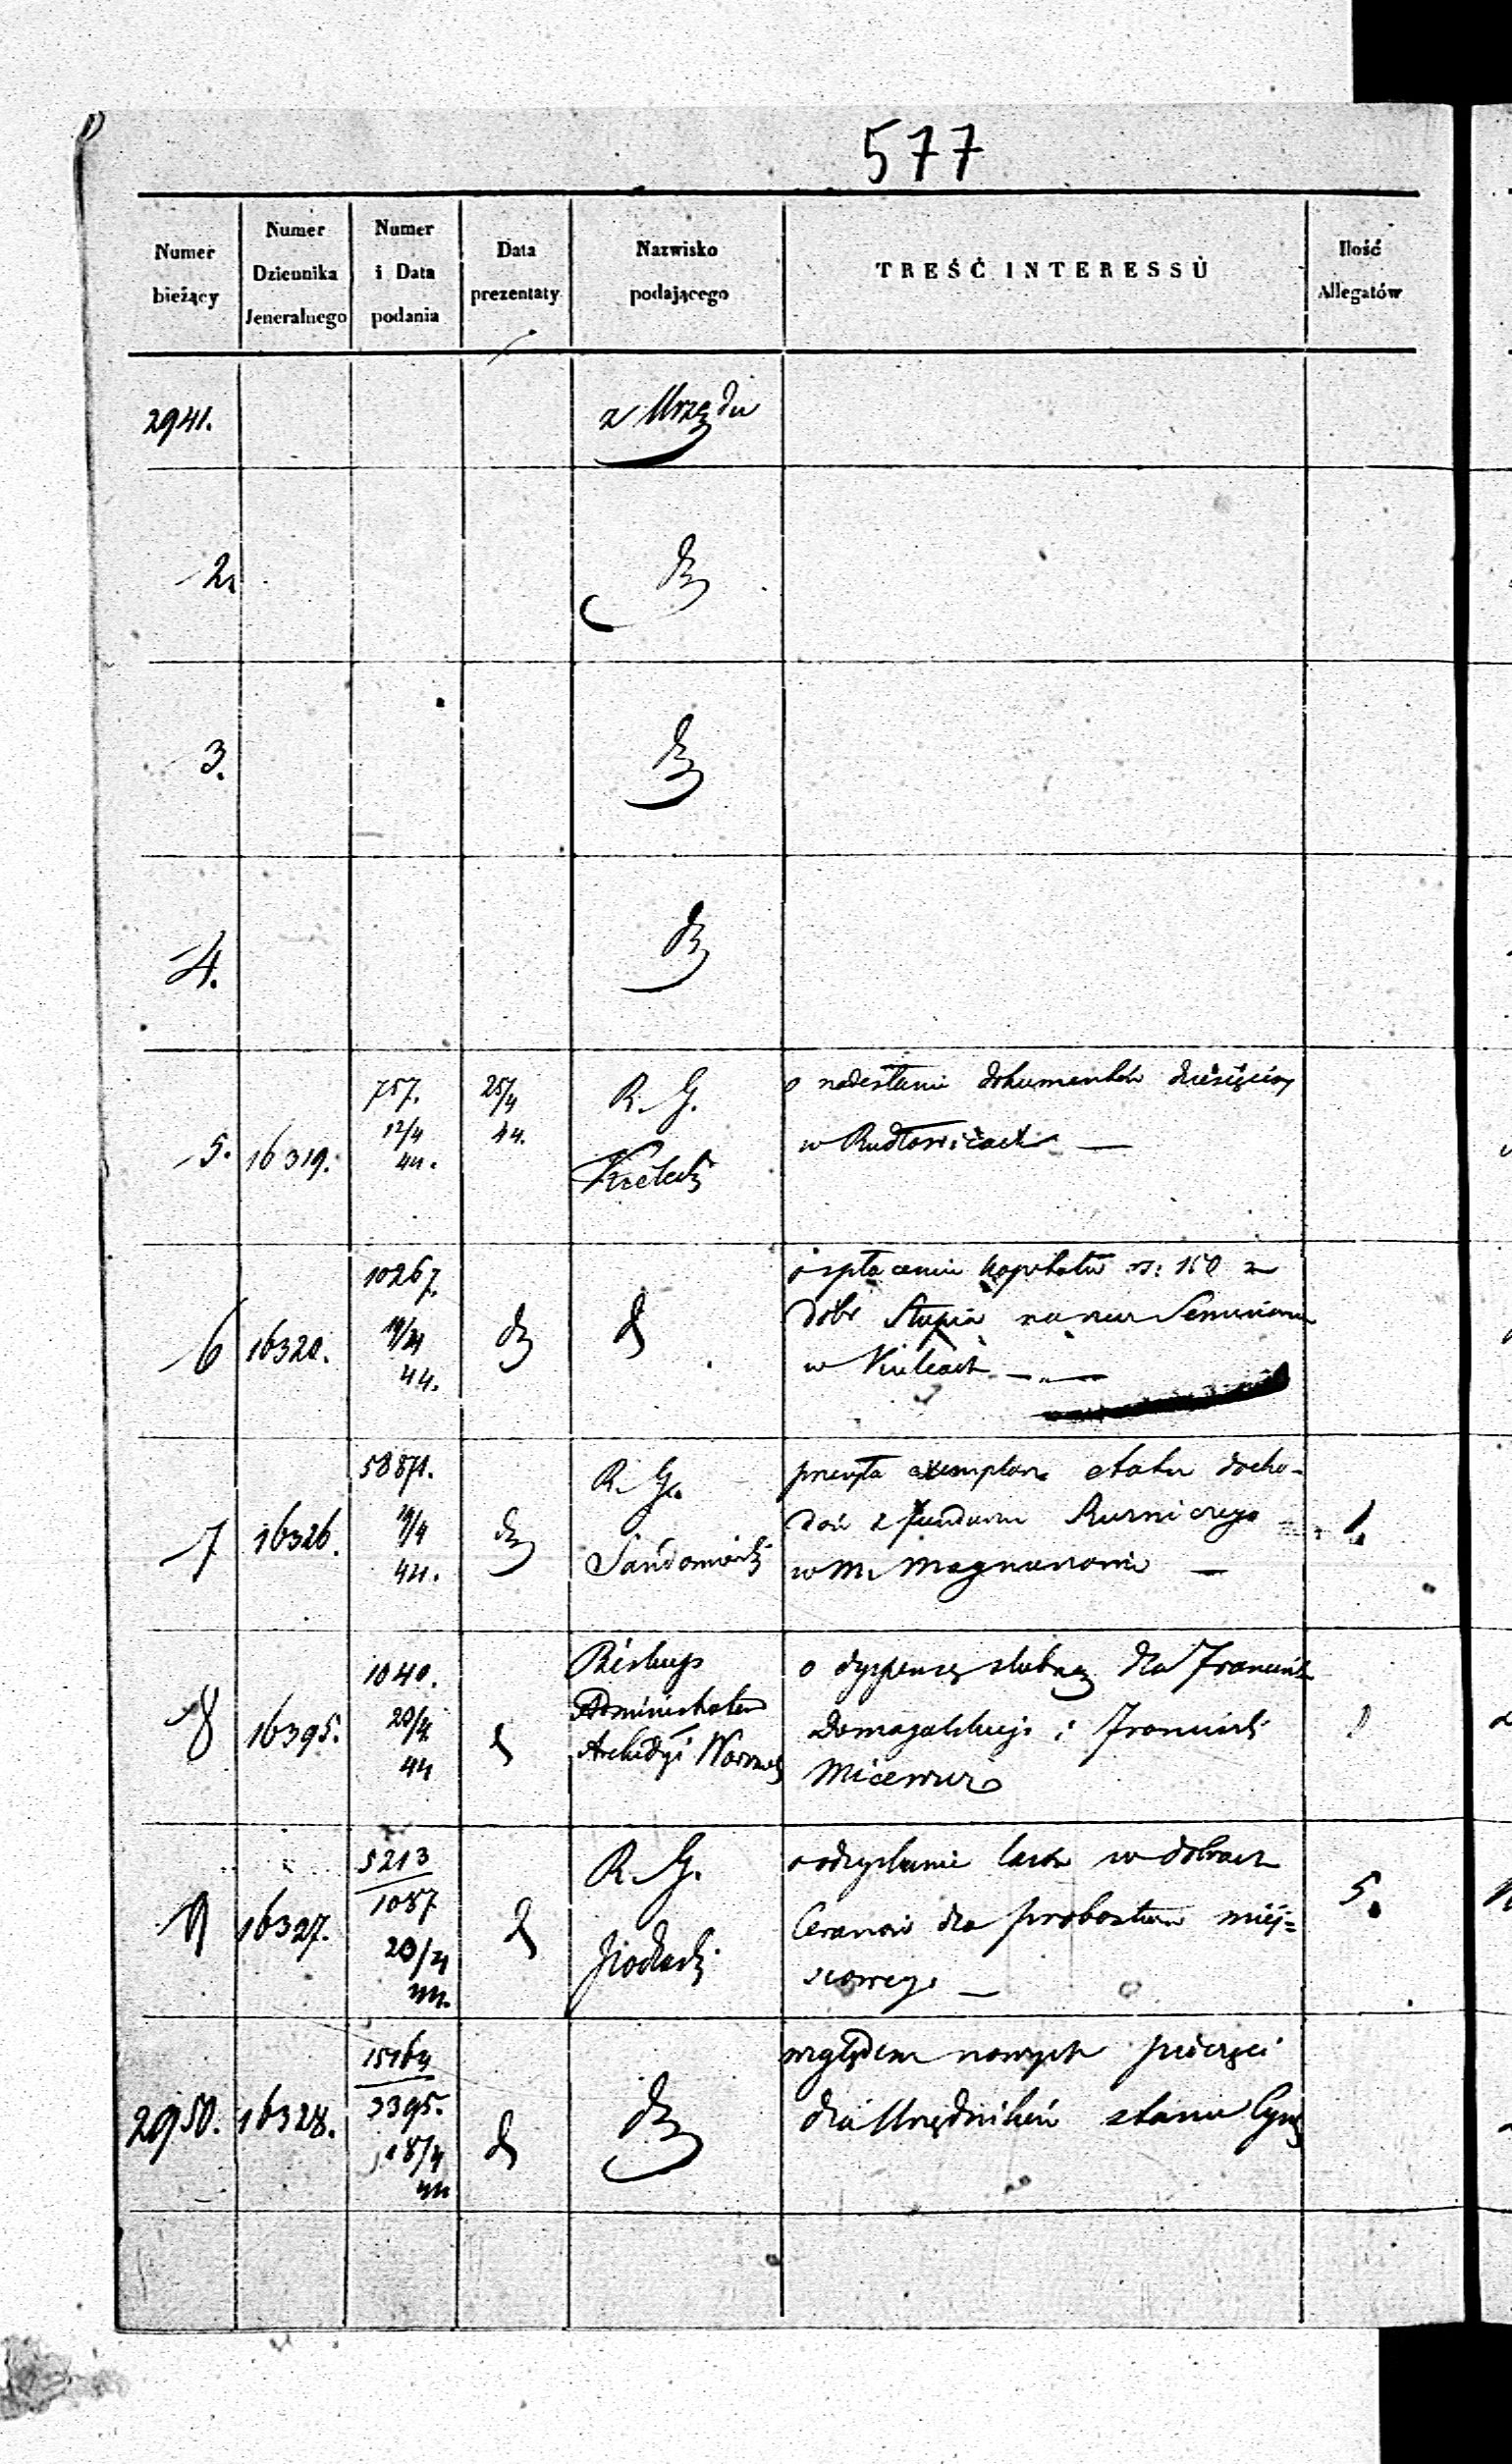 577
Numer bieżący
Numer Dziennika Jeneralnego
Numer i Data podania
Data prezentaty
Nazwisko podającego
TREŚĆ INTERESSU
Ilość Allegatów
2941.
z Urzędu
2.
dt
3.
dt
4.
dt
5. 16319.
757.
12/4
44.
25/4
44.
R. G.
Kielecki
o nadesłanie dokumentów dziesięciny
w Rudłowicach —
6 16320.
10267.
19/4
44.
dt
dt
o spłacenie kapitału rs: 150 z
dóbr Słupia na rzecz Seminarium
w Kielcach —
7 16326.
58871.
19/4
44.
dt
R. G.
Sandomierski
przesyła exemplarz etatu docho-
dów z funduszu
w M. Magnuszewie —
1.
8 16395.
1040.
20/4
44
dt
Biskup
Administrator
Archidyi Warszaws
o dyspensę ślubną dla Franciszk
Domagalskiego i Franciszki
9 16327.
5213
1087
20/4
44.
dt
R. G.
Podlaski
lasów w dobrach
Ceranów dla probostwa miej=
scowego —
5.
2950. 16328.
15164
3395.
18/4
44
dt
dt
względem nowych pieczęci
dla Urzędników stanu Cyw